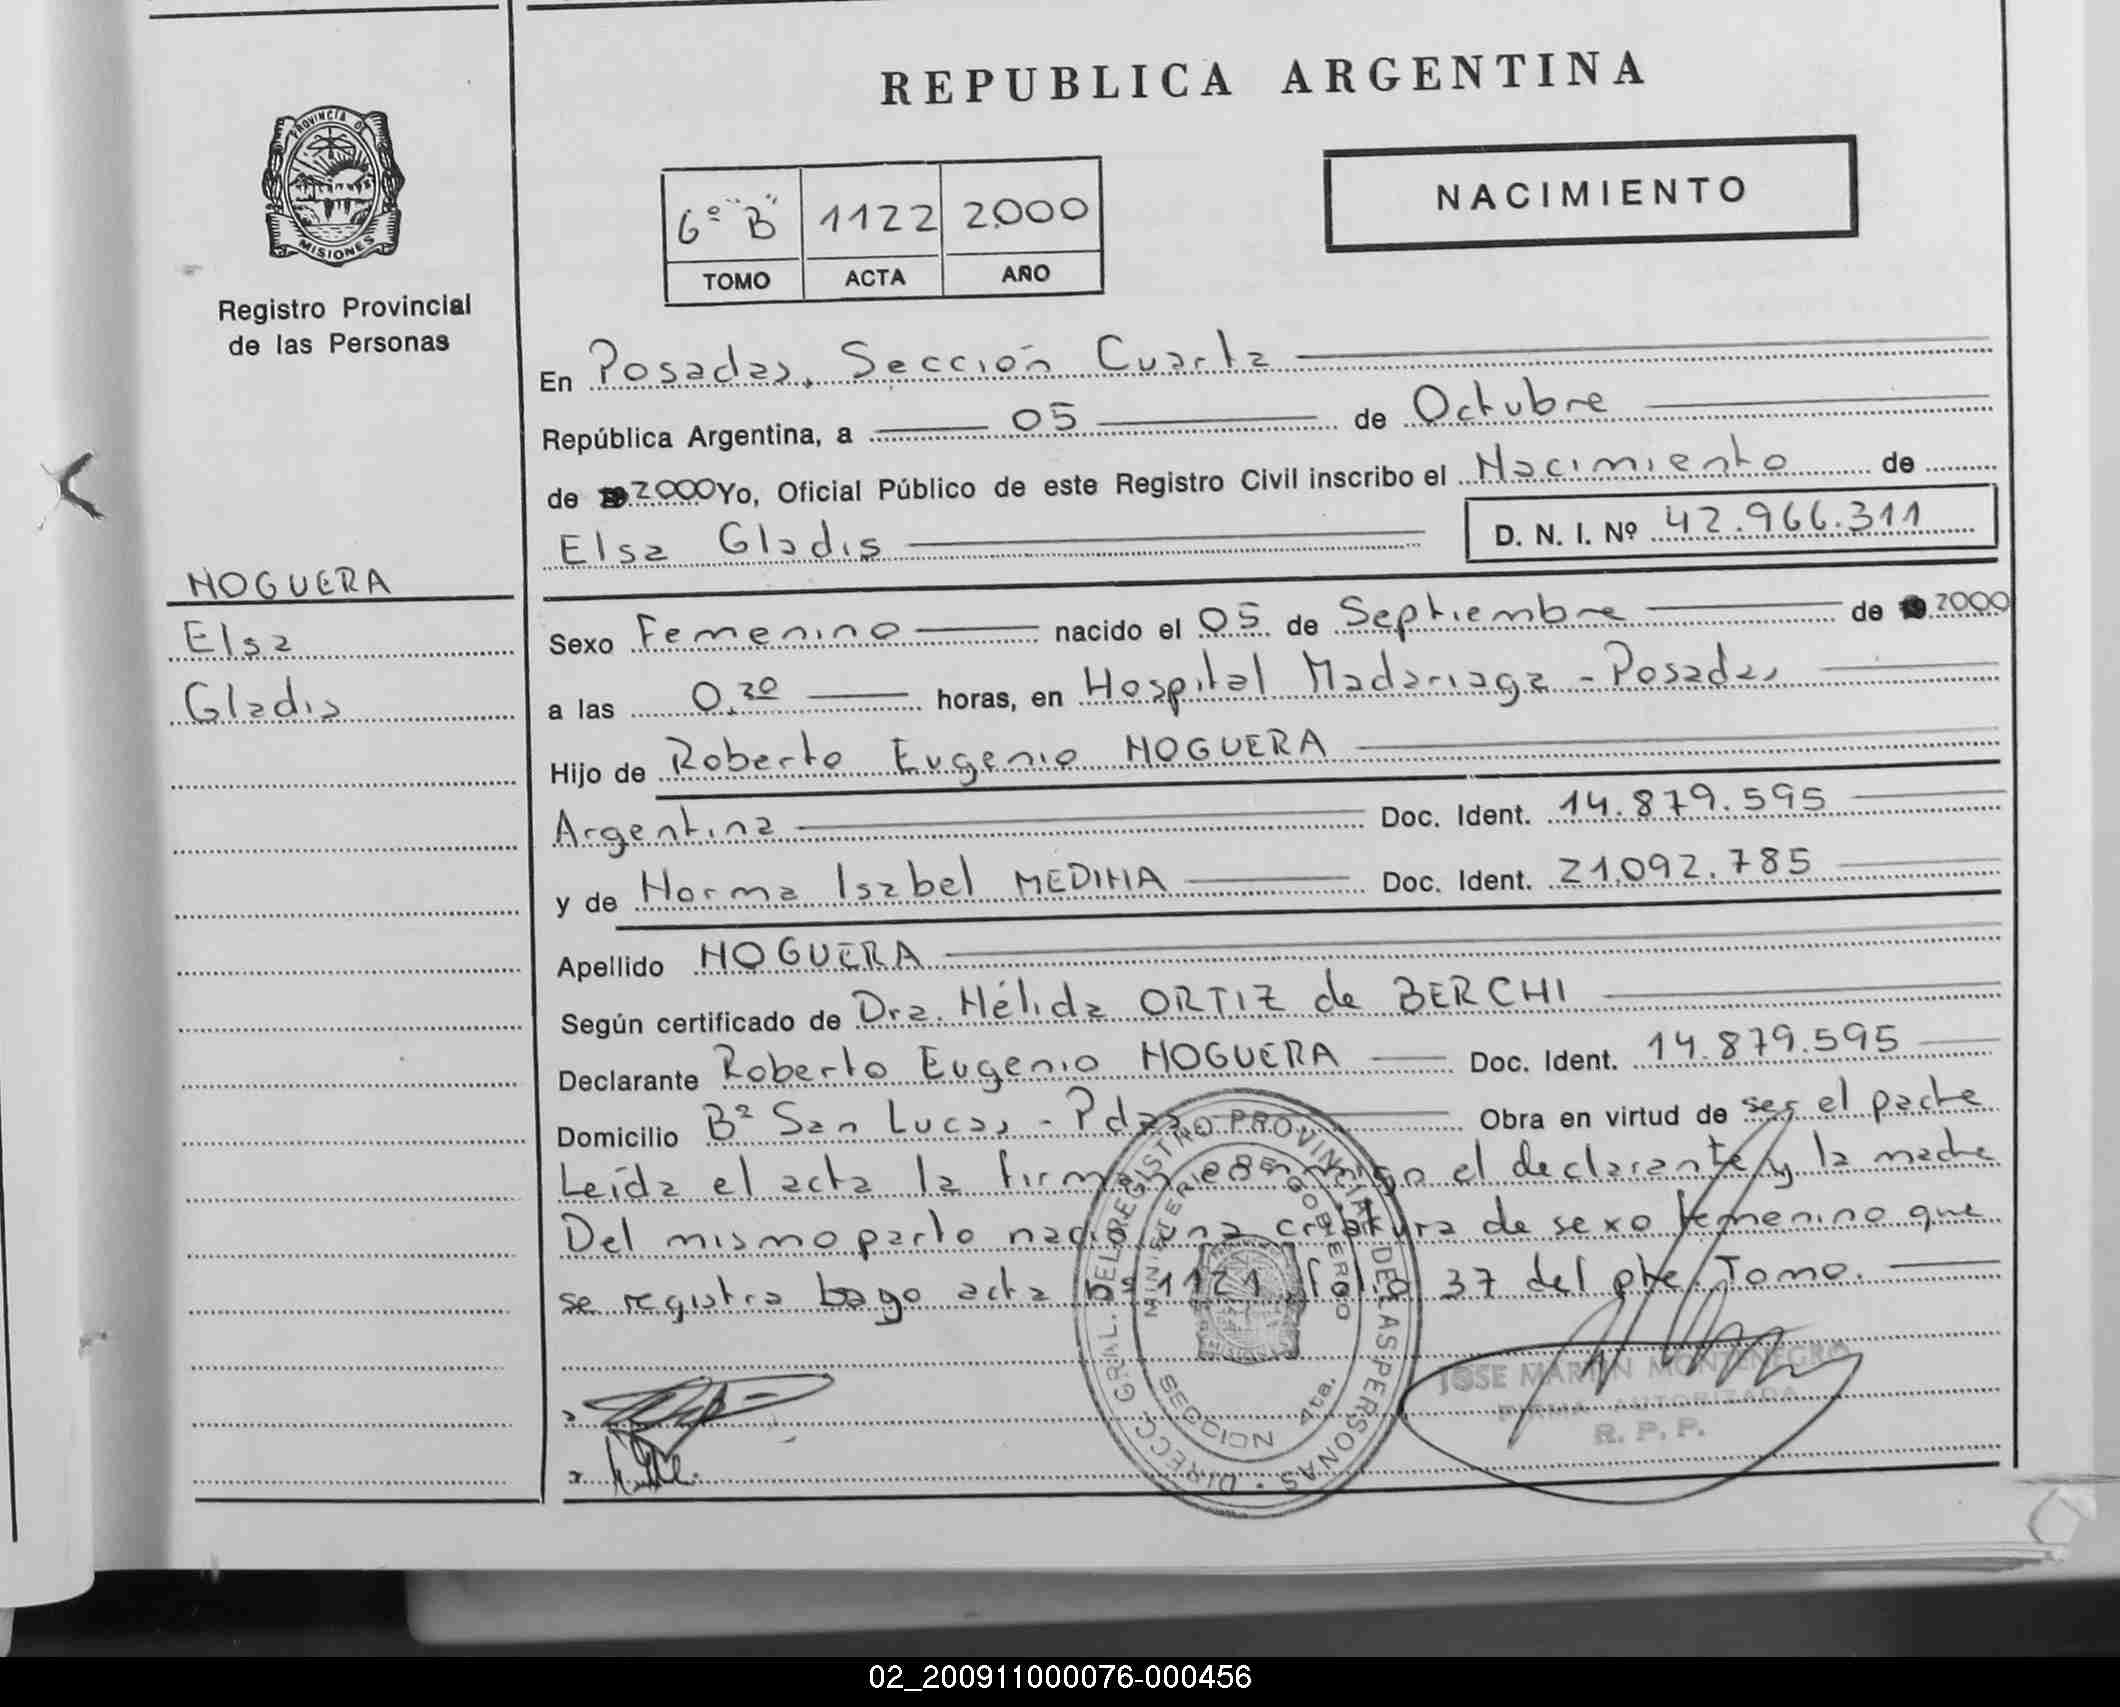 REPUBLICA ARGENTINA
PROVINCIA DE
MISIONES
Registro Provincial
de las Personas
6º "B" 1122 2.000
TOMO ACTA AÑO
NACIMIENTO
En Posadas, Sección Cuarta
República Argentina, a 05 de Octubre
de 2000 Yo, Oficial Público de este Registro Civil inscribo el Nacimiento de
Elsa Gladis D. N. I. Nº 42.966.311
NOGUERA
Elsa
Gladis
Sexo Femenino nacido el 05 de Septiembre de 2000
a las 0,30 horas, en Hospital Madariaga - Posadas
Hijo de Roberto Eugenio NOGUERA
Argentina Doc. Ident. 14.879.595
y de Norma Isabel MEDINA Doc. Ident. 21.092.785
Apellido NOGUERA
Según certificado de Dra. Nélida ORTIZ de BERCHI
Declarante Roberto Eugenio NOGUERA Doc. Ident. 14.879.595
Domicilio Bº San Lucas - Pdas Obra en virtud de ser el padre
Leída el acta la firman conmigo el declarante y la madre
Del mismo parto nació una criatura de sexo femenino que
se registra bago acta nº 1121 folio 37 del pte. Tomo.
DIRECC. GRAL. DEL REGISTRO PROVINCIAL DE LAS PERSONAS
MINISTERIO DE GOBIERNO
SECCION 4ta.
JOSE MARTIN MONTENEGRO
FIRMA AUTORIZADA
R. P. P.
02_200911000076-000456